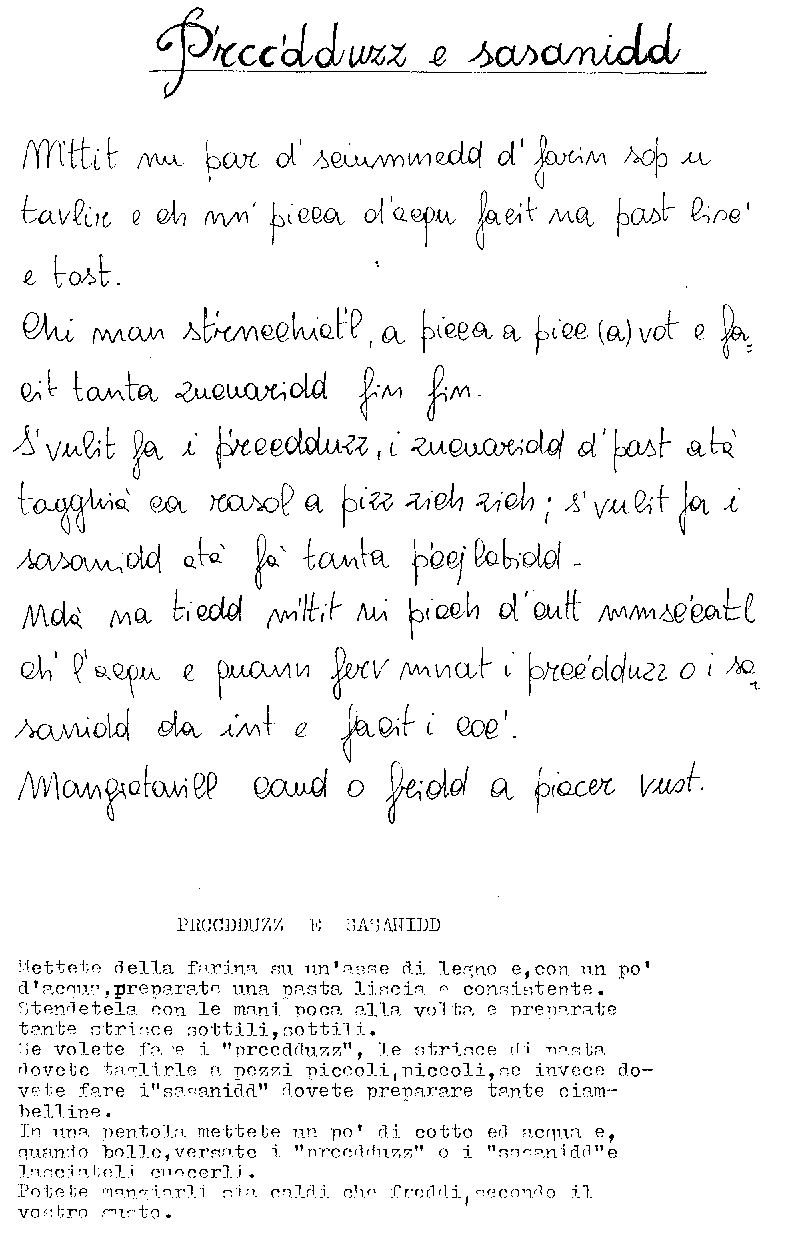 P'rcc'dduzz e sasanidd
M'ttit nu par d' sciummedd d' farin sop u
tavlir e ch nn' picca d'acqu facit na past lisc'
e tost.
Chi man stirnecchiat'l, a picca a picc (a) vot e fa=
cit tanta zucuaridd fin fin.
S'vulit fa i p'rccdduzz, i zucuaridd d'past atà
tagghià ca rasol a pizz zich zich; s'vulit fa i
sasanidd atà fà tanta p'ccjlatidd -
Mdà na tiedd m'ttit ni picch d'cutt mmsc'catl
ch' l'acqu e quann ferv mnat i prcc'dduzz o i sa
sanidd da int e facit i coc'.
Mangiatavill caud o fridd a piacer vust.
PRCCDDUZZ E SASANIDD
Mettete della farina su un'asse di legno e,con un po'
d'acqua,preparate una pasta liscia e consistente.
Stendetela con le mani poca alla volta e preparate
tante strisce sottili,sottili.
Se volete fare i "prccdduzz", le strisce di pasta
dovete taglirle a pezzi piccoli,piccoli,se invece do-
vete fare i"sasanidd" dovete preparare tante ciam-
belline.
In una pentola mettete un po' di cotto ed acqua e,
quando bolle,versate i "prccdduzz" o i "sasanidd"e
lasciateli cuocerli.
Potete mangiarli sia caldi che freddi,secondo il
vostro gusto.